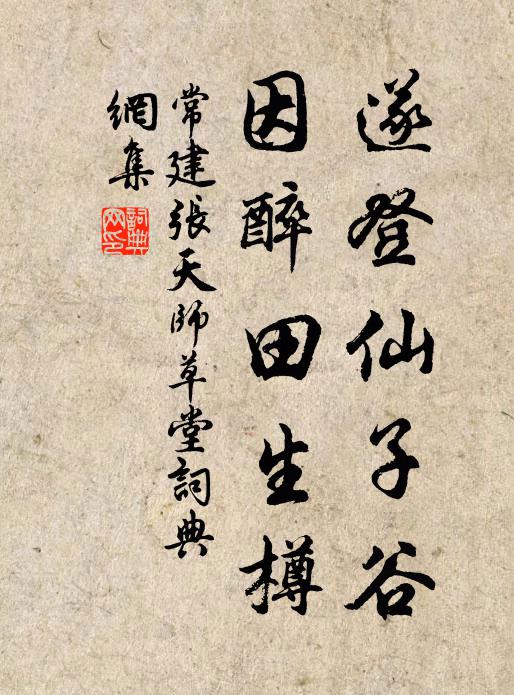 遂登仙子谷
因醉田生樽
常建張天師草堂詞典
網集
詞典網印